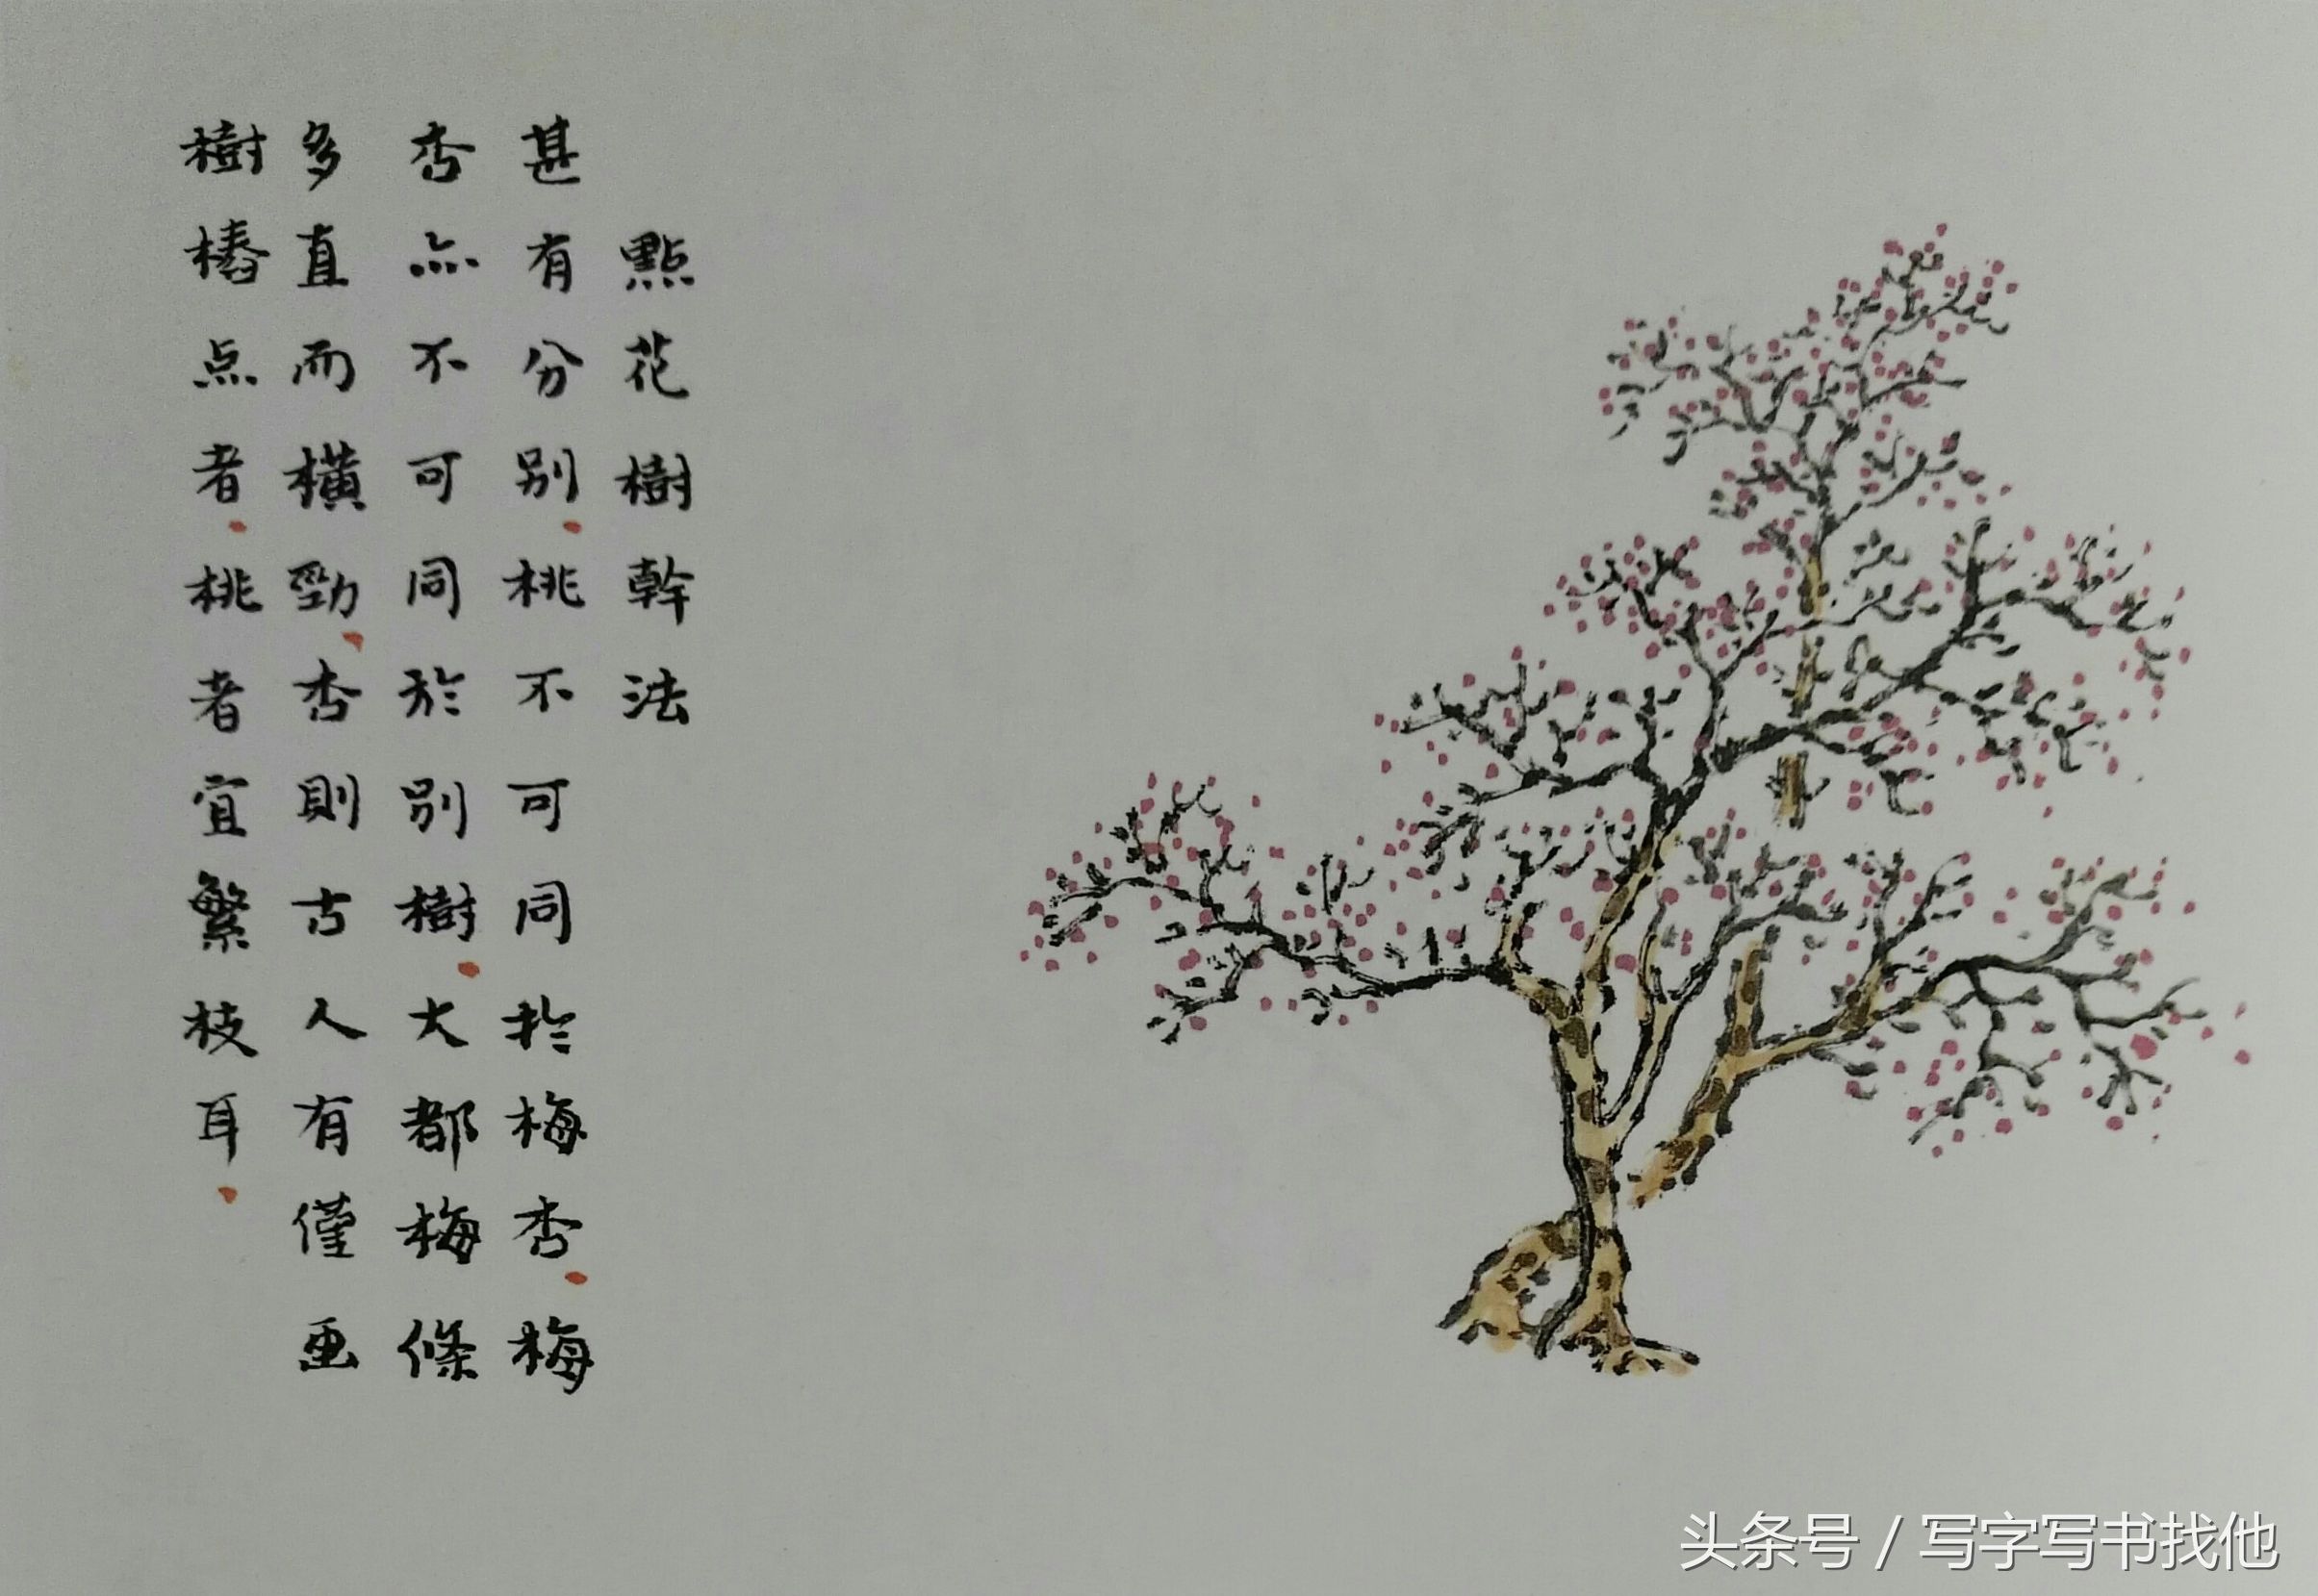 點花樹幹法
甚有分別桃不可同於梅杏梅
杏亦不可同於別樹大都梅條
多直而橫勁杏則古人有僅画
樹樁点者桃者宜繁枝耳
头条号 / 写字写书找他